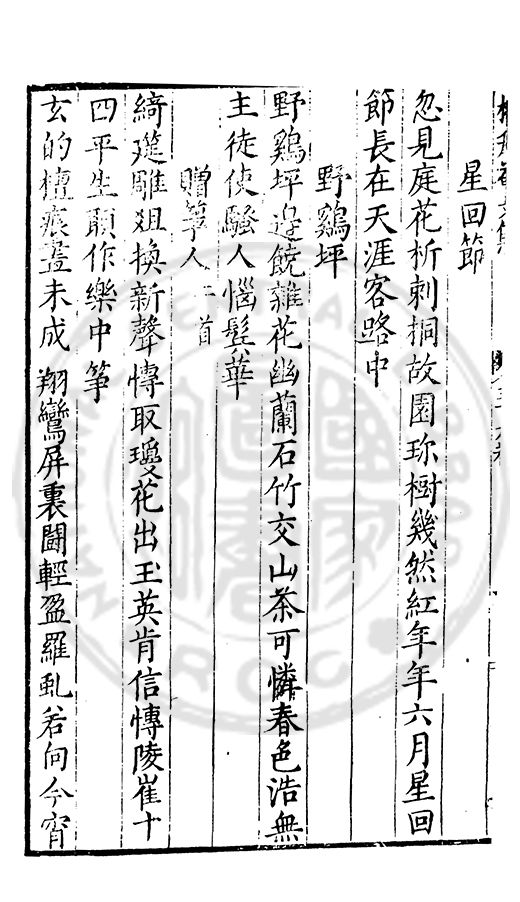 星回節
忽見庭花析刺桐故園珍樹幾然紅年年六月星回
節長在天涯客路中
野鷄坪
野鷄坪邊饒雜花幽蘭石竹交山茶可憐春色浩無
主徒使騷人惱髩華
贈箏人二首
綺筵雕俎換新聲慱取瓊花出玉英肯信慱陵崔十
四平生願作樂中箏
玄的檀痕畫未成 翔鸞屏裏鬪輕盈羅虬若向今宵